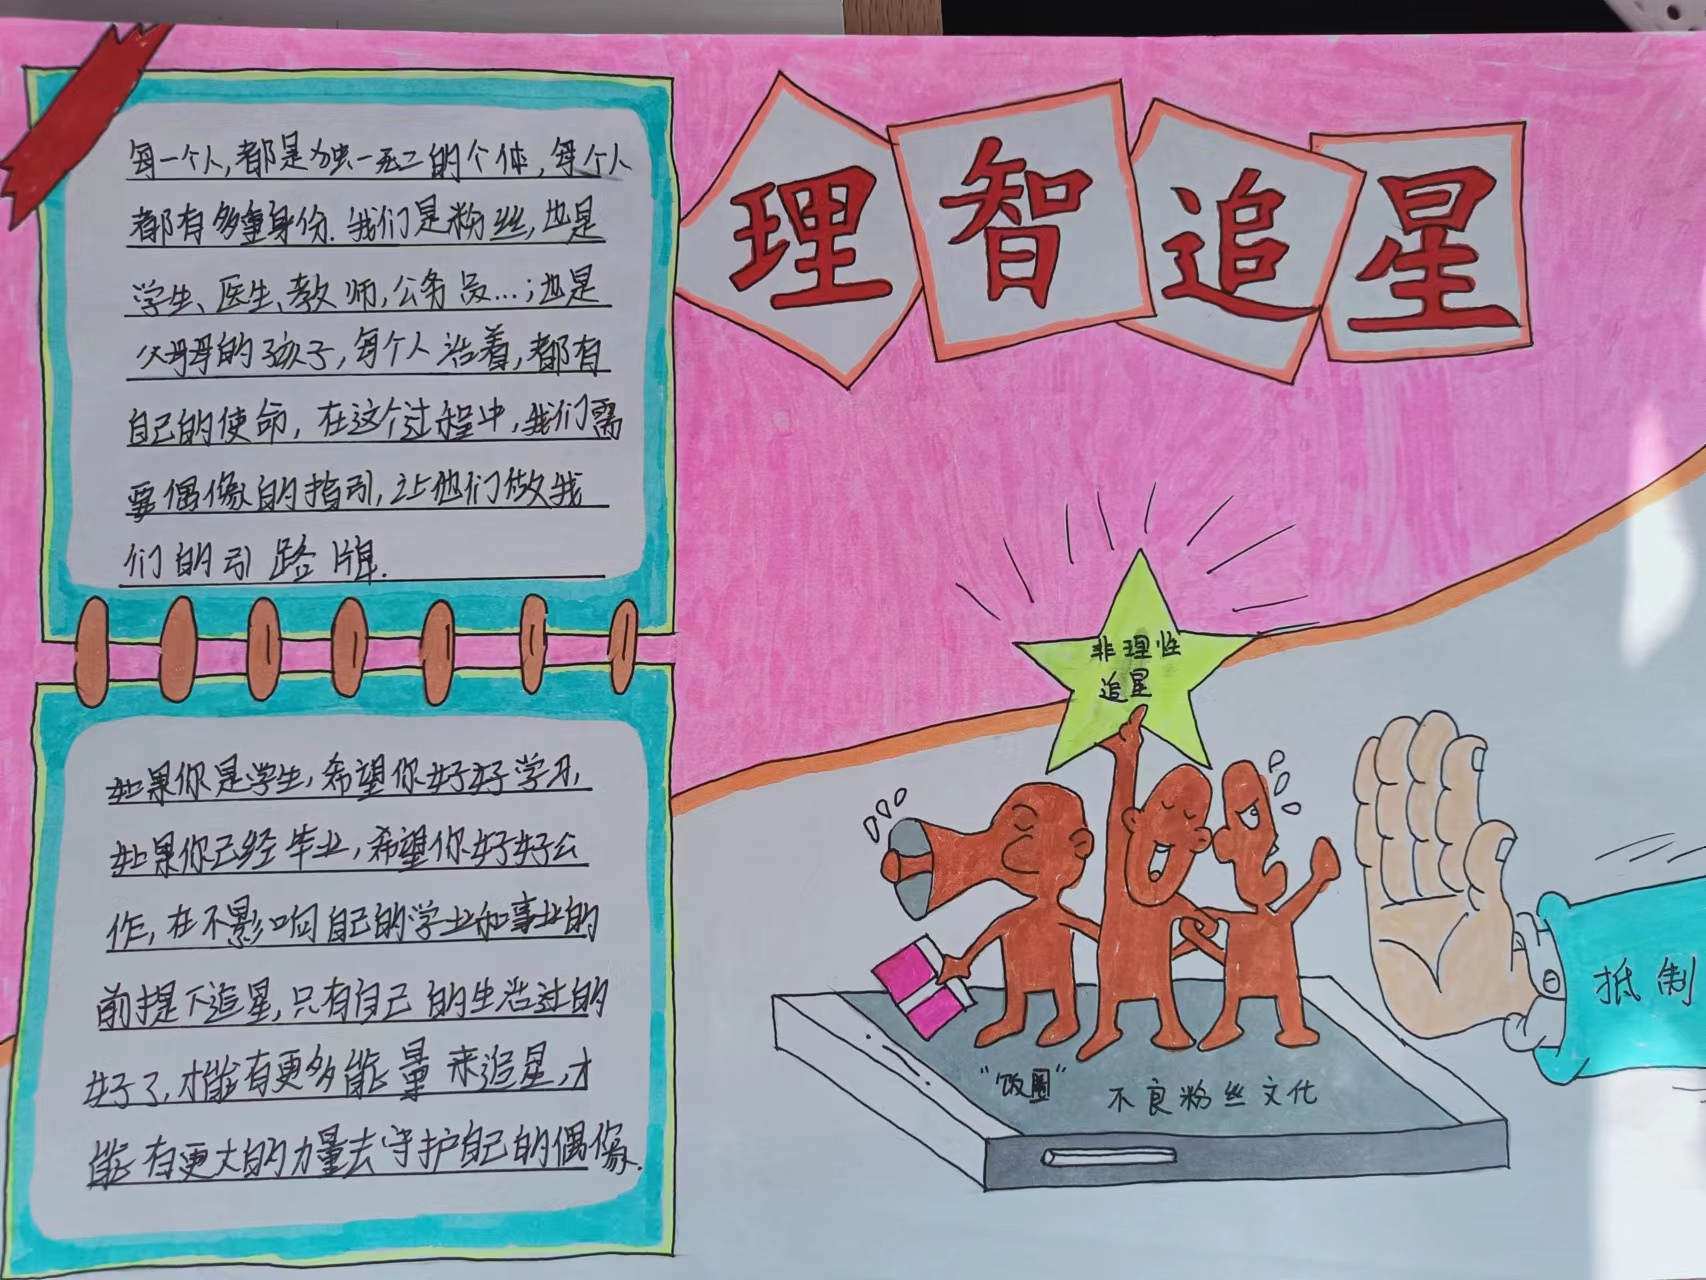 理智追星
每一个人,都是独一无二的个体,每个人
都有多重身份.我们是粉丝,也是
学生、医生、教师,公务员...;也是
父母的孩子,每个人活着,都有
自己的使命,在这个过程中,我们需
要偶像的指引,让他们做我
们的引路牌.
如果你是学生,希望你好好学习,
如果你已经毕业,希望你好好公
作,在不影响自己的学业和事业的
前提下追星,只有自己的生活过的
好了,才能有更多能量来追星,才
能有更大的力量去守护自己的偶像.
非理性
追星
抵制
"饭圈"不良粉丝文化